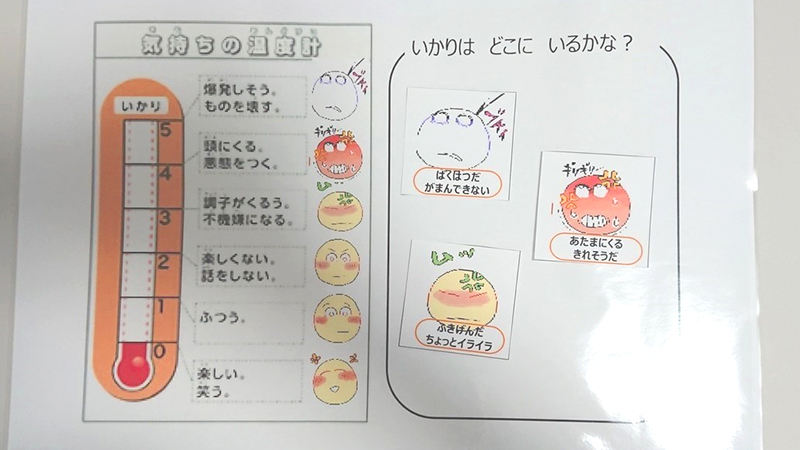 気持ちの温度計
いかり
5
爆発しそう。
ものを壊す。
4
頭にくる。
悪態をつく。
3
調子がくるう。
不機嫌になる。
2
楽しくない。
話をしない。
1
ふつう。
0
楽しい。
笑う。
いかりは どこに いるかな？
ばくはつだ
がまんできない
ギリギリ
あたまにくる
きれそうだ
ふきげんだ
ちょっとイライラ